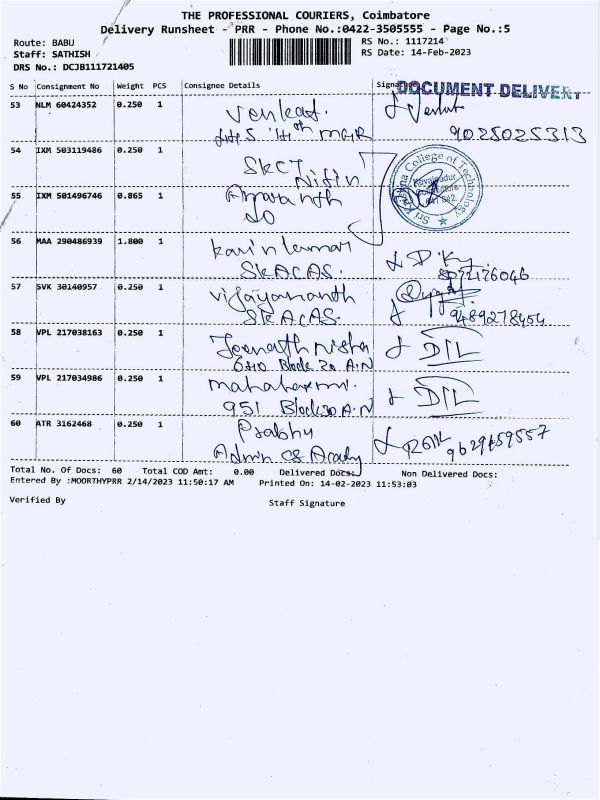 THE PROFESSIONAL COURIERS, Coimbatore
Delivery Runsheet - PRR - Phone No.:0422-3505555 - Page No.:5
Route: BABU
RS No.: 1117214
Staff: SATHISH
RS Date: 14-Feb-2023
DRS No.: DCJB111721405
S No Consignment No Weight PCS Consignee Details Sign
DOCUMENT DELIVERY
53 NLM 60424352 0.250 1 Venkat.
9025025313
54 IXM 503119486 0.250 1 SKCT
Nifin
Sri Krishna College of Technology
Kovaipudur
Coimbatore
641 042
55 IXM 501496746 0.865 1
56 MAA 290486939 1.800 1
SKACAS.
8072176046
57 SVK 30140957 0.250 1 vijayananth
SKACAS.
9489278454
58 VPL 217038163 0.250 1
Block 20 A.N
59 VPL 217034986 0.250 1
951 Block 20 A.N
60 ATR 3162468 0.250 1 Prabhu
Admin CS
9629159557
Total No. Of Docs: 60 Total COD Amt: 0.00 Delivered Docs: Non Delivered Docs:
Entered By :MOORTHYPRR 2/14/2023 11:50:17 AM Printed On: 14-02-2023 11:53:03
Verified By Staff Signature